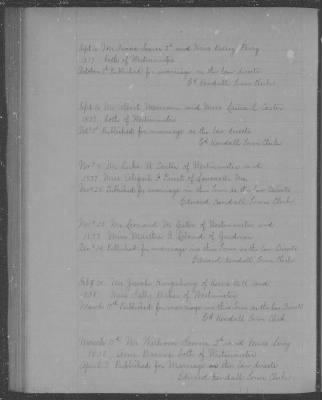 Sept 16 Mr Isaac Sawin 2d and Miss
1837 both of Westminster
October 1st Published for marriage as the law directs
Ed Kendall Town Clerk
Sept 16 Mr Albert Merriam and Miss Louisa Carter
1837 both of Westminster
Oct 1st Published for marriage as the law directs
Ed Kendall Town Clerk
Nov 11 Mr Luke W Carter of Westminster and
1837 Miss Abigail of Lancaster
Nov 28 Published for marriage in this Town as the Law Directs
Edward Kendall Town Clerk
Nov 25 Mr Leonard M Carter of Westminster and
1837 Miss Martha A Leland of Gardner
Dec 14 Published for marriage in this Town as the Law Directs
Edward Kendall Town Clerk
Feb 24 Mr Josiah Kingsbury of and
1838 Miss Sally of Westminster
March 11th Published for marriage in this Town as the Law Directs
Ed Kendall Town Clerk
March 17th Mr William Sawin 2d and Miss Lucy
1838 Ann both of Westminster
April 2 Published for Marriage as the law directs
Edward Kendall Town Clerk